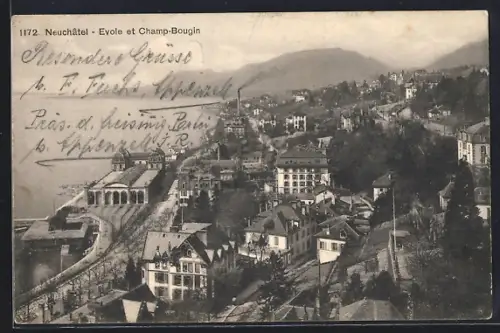 1172 Neuchâtel - Evole et Champ-Bougin
Besondere Grüsse
v. F. Fuchs, Appenzell
Präs. d.
v. Appenzell